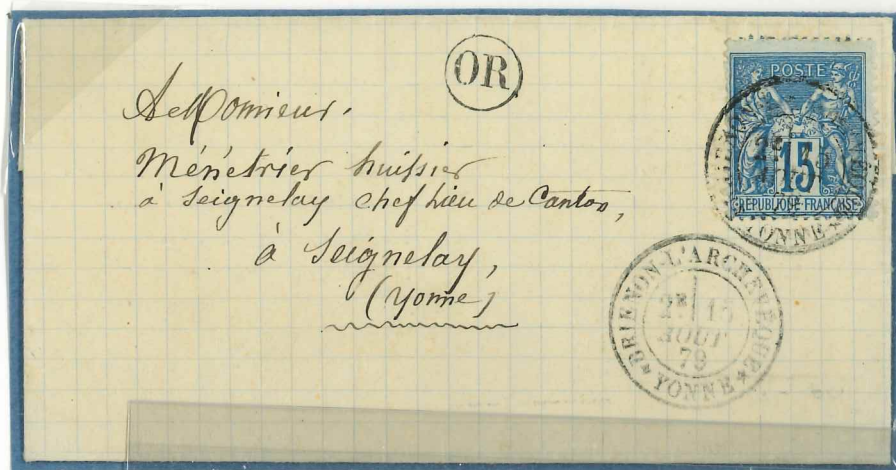 OR
POSTE
15
REPUBLIQUE FRANÇAISE
YONNE
A Monsieur.
Ménétrier huissier
à Seignelay chef lieu de Canton,
à Seignelay,
(Yonne)
BRIENON-L'ARCHEVÊQUE
2E 15
AOUT
79
YONNE